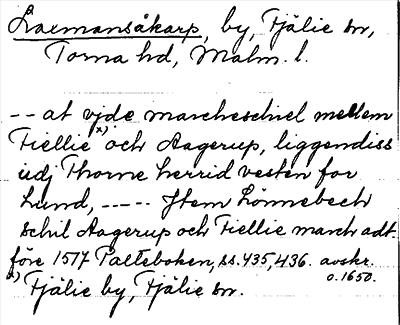 Laxmansåkarp, by, Fjälie sn,
Torna hd, Malm. l.
-- at vjde marcheschiel mellem
Fiellie x) och Aagerup, liggendiss
udj Thorne herrid vesten for
Lund, ----- Jtem Lönnebech
schil Aagerup och Fiellie march adt.
före 1517 Palteboken, ss. 435, 436. avskr.
o. 1650.
x) Fjälie by, Fjälie sn.